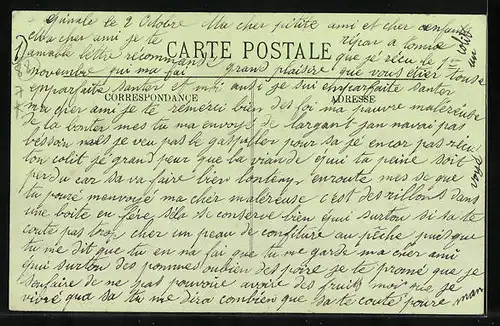 Epinale le 2 Octobre Ma cher petite ami et cher enfants
cher cher ami je te répon a ton
CARTE POSTALE
amable lettre recommandé que je récu le 1er
novembre qui ma fai grans plaisire que vous étier tousse
enparfaite santer et moi ausi je sui enparfaite santer
CORRESPONDANCE ADRESSE
ma cher ami je te remerci bien des foi ma pauvre malereuse
de la bonter mes tu ma envoyé de largant jan navai pas
bessoin mais je veu pas le gaspiller pour sa je encor pas recu
ton colit je grand peur que la viande equi ta paine soit
perdu car sa va faire bien lontemp enroute mes se que
tu pouré menvoyé ma cher malereuse c'est des rillons dans
une boite en fère sela se conserve bien qui surton si sa te
coute pas trop cher un peau de confiture au pêche puisque
tu me dit que tu en na fai que tu me garde ma cher ami
qui surton des pommes oubien des poire je te promé que je
soufaire de ne pas pouvoire avoire des fruits moi que je
vivré qua sa tu me dira combien que sa te coute poure man
voyé
un colit